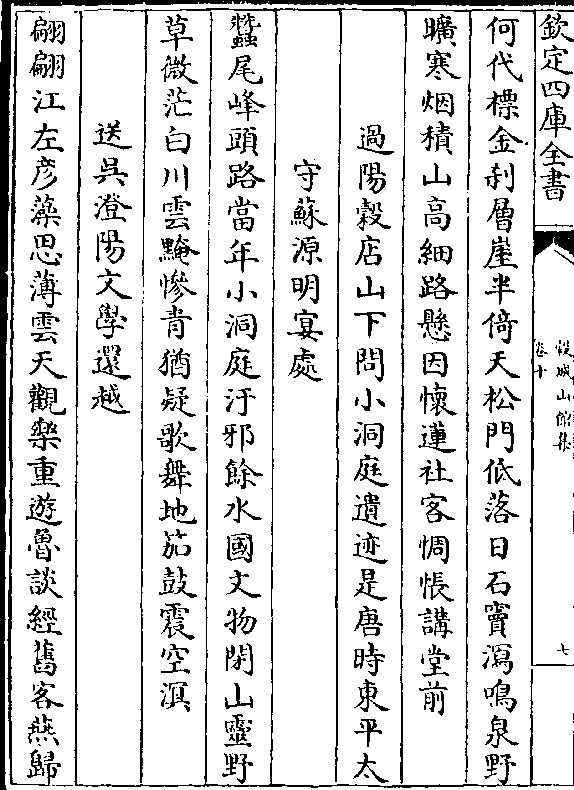 欽定四庫全書
穀城山館集
卷十
七
何代標金刹層崖半倚天松門低落日石竇瀉鳴泉野
曠寒烟積山高細路懸因懷蓮社客惆悵講堂前
過陽穀店山下問小洞庭遺迹是唐時東平太
守蘇源明宴處
蠶尾峰頭路當年小洞庭汙邪餘水國文物閉山靈野
草微茫白川雲黤慘青猶疑歌舞地笳鼓震空溟
送吳澄陽文學還越
翩翩江左彦藻思薄雲天觀樂重遊魯談經舊客燕歸